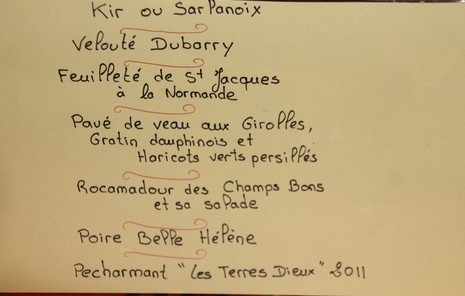 Kir ou Sarlanoix
Velouté Dubarry
Feuilleté de St Jacques
à la Normande
Pavé de veau aux Girolles,
Gratin dauphinois et
Haricots verts persillés
Rocamadour des Champs Bons
et sa salade
Poire Belle Hélène
Pecharmant "Les Terres Dieux" 2011